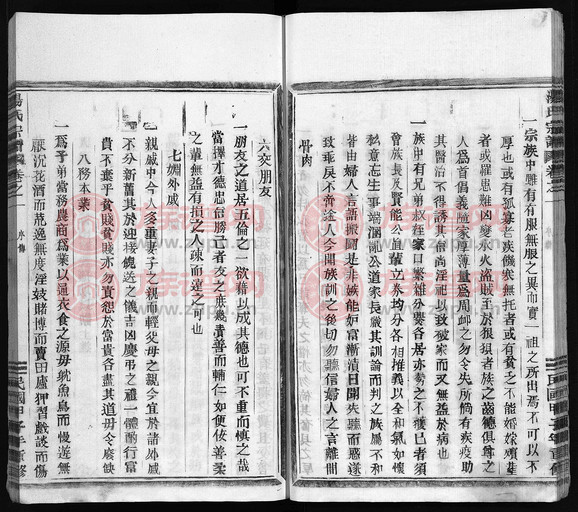 一宗族中雖有有服無服之異而實一祖之所出焉不可以不
厚也或有孤寡老疾饑寒無托者或有貧乏不能婚嫁殯葬
者或罹患難凶變水火盜賊至於狼狽者族之齒德俱尊之
人為首倡義隨家厚薄量為周卹之勿令失所倘有疾疫助
其醫治不得誘其僧尚淫祀以致破家而又無益於病也
一族中有兄弟叔姪家口繁雜分爨各居亦勢之不獲已者須
集族長及賢能公直輩立券均分各相推義以全和氣如懷
私意忘生事端涸瀰公道家長嚴其訓論而判之族屬不和
皆由婦人言語搬鬬是非嫉能妒富漸漬日開失聽而惑遂
致乖戾不啻途人今開族訓之後切勿聽信婦人之言離間
骨肉
六交朋友
一朋友之道居五倫之一欲藉以成其德也可不重而慎之哉
當擇才德忠信勝己者友之庶幾責善而輔仁如便佞善柔
之輩無益有損之人疎而遠之可也
七媚外戚
一親戚中今人多重妻子之親而輕父母之親今宜於諸外戚
不分新舊其於迎接餽送之儀吉凶慶弔之禮一體酌行富
貴不棄乎貧賤貧賤亦勿責怨於富貴各盡其道毋令廢缺
八務本業
一為子弟當務農商為業以通衣食之源毋躭魚鳥而慢遊無
厭沉花酒而荒逸無度淫妓賭博而賣田廬狎習戲談而傷
湯氏宗譜 卷之一 序傳
民國甲子年新修